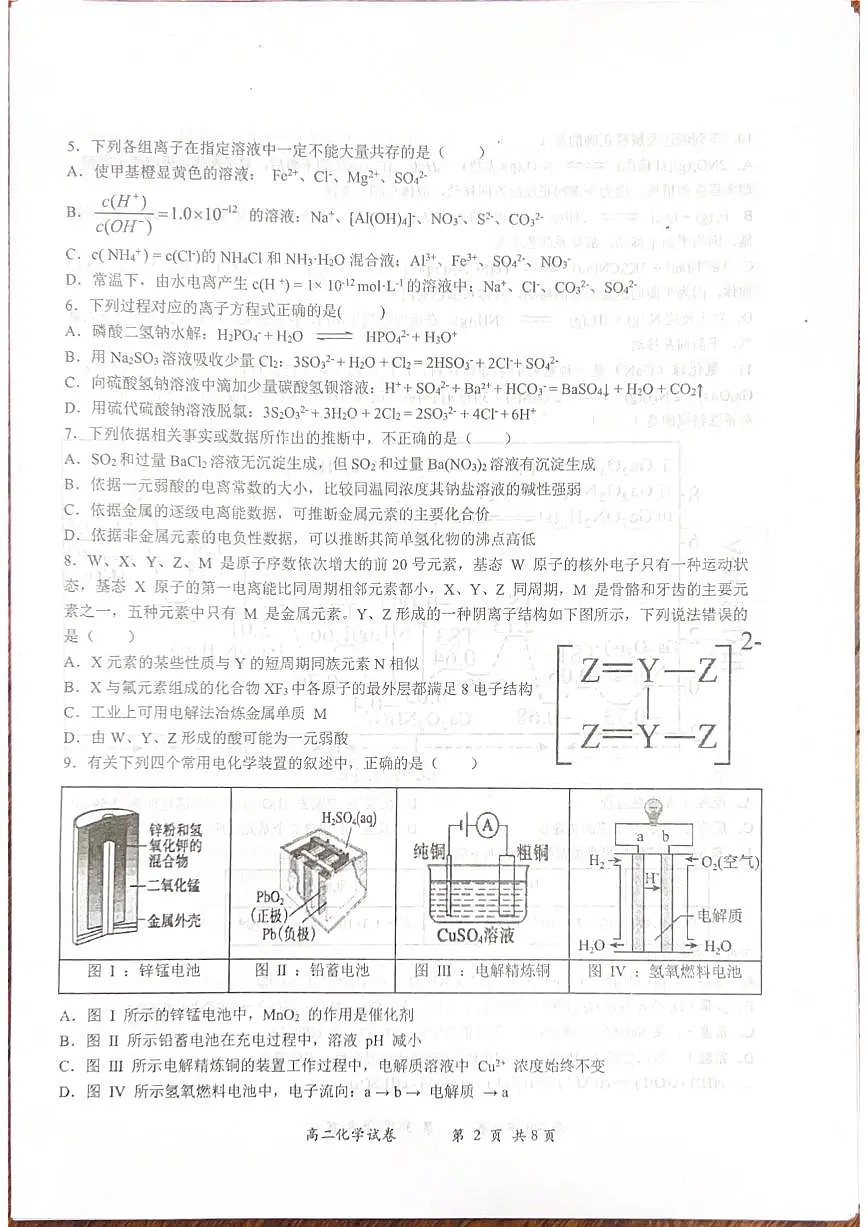 5．下列各组离子在指定溶液中一定不能大量共存的是（　　）
A．使甲基橙显黄色的溶液： Fe²⁺、Cl⁻、Mg²⁺、SO₄²⁻
B．c(H⁺)/c(OH⁻)=1.0×10⁻¹² 的溶液：Na⁺、[Al(OH)₄]⁻、NO₃⁻、S²⁻、CO₃²⁻
C．c( NH₄⁺ ) = c(Cl⁻)的 NH₄Cl 和 NH₃·H₂O 混合液：Al³⁺、Fe³⁺、SO₄²⁻、NO₃⁻
D．常温下，由水电离产生 c(H ⁺) = 1× 10⁻¹² mol·L⁻¹ 的溶液中：Na⁺、Cl⁻、CO₃²⁻、SO₄²⁻
6．下列过程对应的离子方程式正确的是(　　)
A．磷酸二氢钠水解：H₂PO₄⁻ + H₂O ⇌ HPO₄²⁻ + H₃O⁺
B．用 Na₂SO₃ 溶液吸收少量 Cl₂：3SO₃²⁻ + H₂O + Cl₂ = 2HSO₃⁻ + 2Cl⁻ + SO₄²⁻
C．向硫酸氢钠溶液中滴加少量碳酸氢钡溶液：H⁺ + SO₄²⁻ + Ba²⁺ + HCO₃⁻ = BaSO₄↓ + H₂O + CO₂↑
D．用硫代硫酸钠溶液脱氯：3S₂O₃²⁻ + 3H₂O + 2Cl₂ = 2SO₃²⁻ + 4Cl⁻ + 6H⁺
7．下列依据相关事实或数据所作出的推断中，不正确的是（　　）
A．SO₂ 和过量 BaCl₂ 溶液无沉淀生成，但 SO₂ 和过量 Ba(NO₃)₂ 溶液有沉淀生成
B．依据一元弱酸的电离常数的大小，比较同温同浓度其钠盐溶液的碱性强弱
C．依据金属的逐级电离能数据，可推断金属元素的主要化合价
D．依据非金属元素的电负性数据，可以推断其简单氢化物的沸点高低
8．W、X、Y、Z、M 是原子序数依次增大的前 20 号元素，基态 W 原子的核外电子只有一种运动状
态，基态 X 原子的第一电离能比同周期相邻元素都小，X、Y、Z 同周期，M 是骨骼和牙齿的主要元
素之一，五种元素中只有 M 是金属元素。Y、Z 形成的一种阴离子结构如下图所示，下列说法错误的
是（　　）
A．X 元素的某些性质与 Y 的短周期同族元素 N 相似
B．X 与氟元素组成的化合物 XF₃ 中各原子的最外层都满足 8 电子结构
C．工业上可用电解法冶炼金属单质 M
D．由 W、Y、Z 形成的酸可能为一元弱酸
Z═Y—Z
2-
Z═Y—Z
9．有关下列四个常用电化学装置的叙述中，正确的是（　　）
锌粉和氢
氧化钾的
混合物
二氧化锰
金属外壳
H₂SO₄(aq)
PbO₂
(正极)
Pb(负极)
A
纯铜
粗铜
CuSO₄溶液
a b
H₂
O₂(空气)
H⁺
电解质
H₂O
H₂O
图 Ⅰ ：锌锰电池 图 Ⅱ ：铅蓄电池 图 Ⅲ ：电解精炼铜 图 Ⅳ ：氢氧燃料电池
A．图 Ⅰ 所示的锌锰电池中，MnO₂ 的作用是催化剂
B．图 Ⅱ 所示铅蓄电池在充电过程中，溶液 pH 减小
C．图 Ⅲ 所示电解精炼铜的装置工作过程中，电解质溶液中 Cu²⁺ 浓度始终不变
D．图 Ⅳ 所示氢氧燃料电池中，电子流向：a → b → 电解质 → a
高二化学试卷 第 2 页 共 8 页